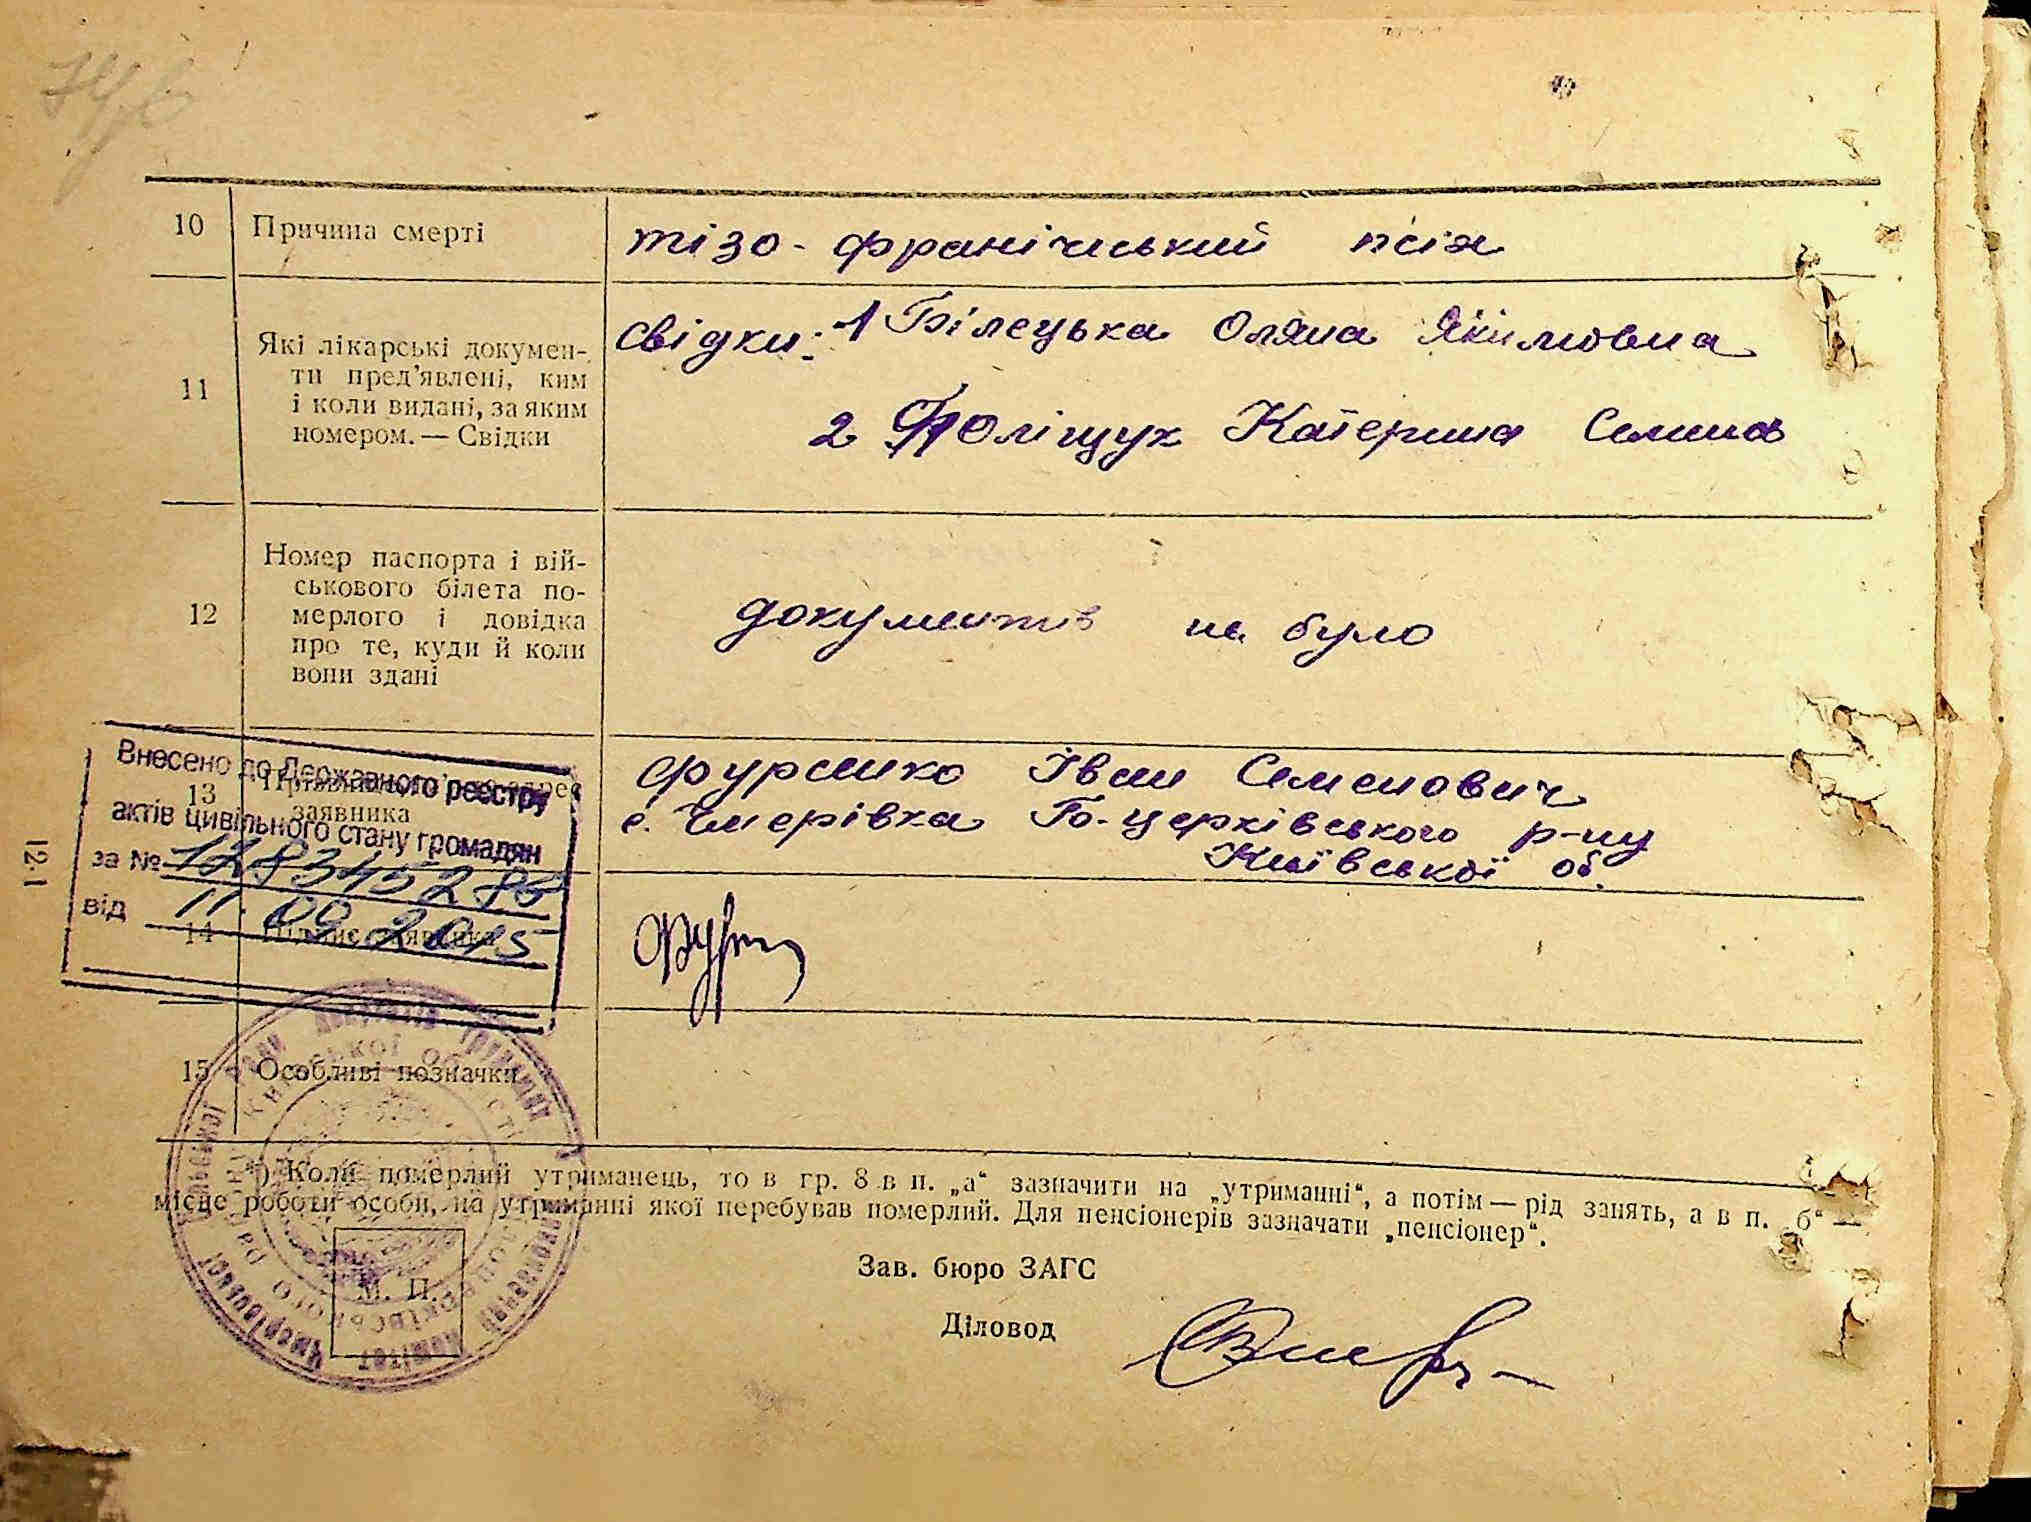 10 Причина смерті тізо-франічиський псіх
11 Які лікарські докумен-
ти пред’явлені, ким
і коли видані, за яким
номером. — Свідки
Свідки: 1 Білецька Оляна Якимовна
2 Поліщук Катерина Семенов
12 Номер паспорта і вій-
ськового білета по-
мерлого і довідка
про те, куди й коли
вони здані
документів не було
Внесено до Державного реєстру
актів цивільного стану громадян
за № 128345285
від 11.09.2015
13 заявника
Фурсенко Іван Семенович
с. Чмерівка Б-церківського р-ну
Київської об.
14 Підпис заявника
15 Особливі позначки
*) Коли померлий утриманець, то в гр. 8 в п. „а“ зазначити на „утриманні“, а потім — рід занять, а в п. „б“ —
місце роботи особи, на утриманні якої перебував померлий. Для пенсіонерів зазначати „пенсіонер“.
Зав. бюро ЗАГС
М. П.
Діловод
12·1